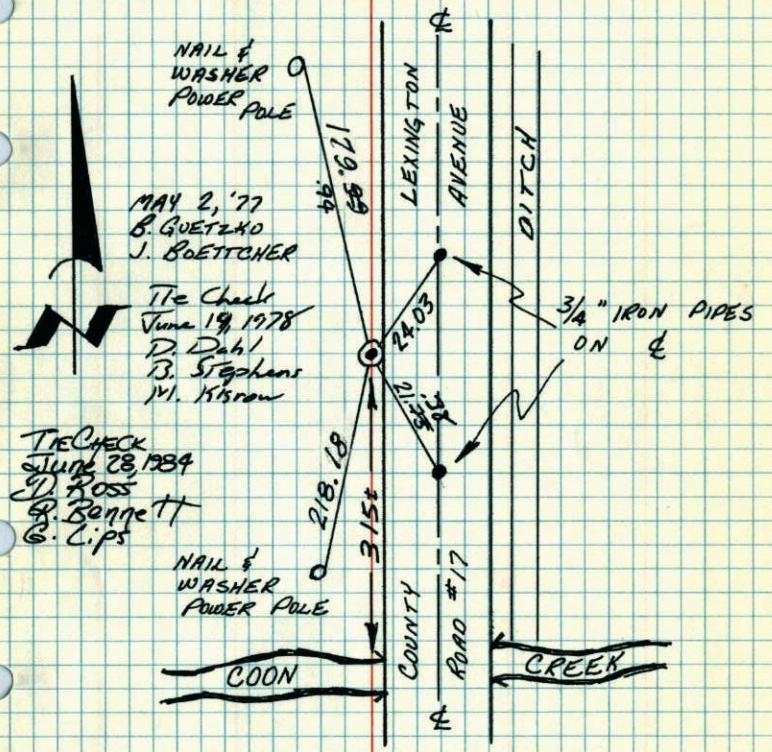 NAIL &
WASHER
POWER
POLE
MAY 2, '77
B. GUETZKO
J. BOETTCHER
Tie Check
June 19, 1978
D. Dahl
B. Stephens
M. Kisrow
TIE CHECK
June 28, 1984
D. Ross
R. Bennett
G. Lips
NAIL &
WASHER
POWER POLE
N
179.
.94
24.03
21.
.38
218.18
315±
℄
LEXINGTON
AVENUE
DITCH
3/4" IRON PIPES
ON ℄
COUNTY
ROAD #17
COON
CREEK
℄